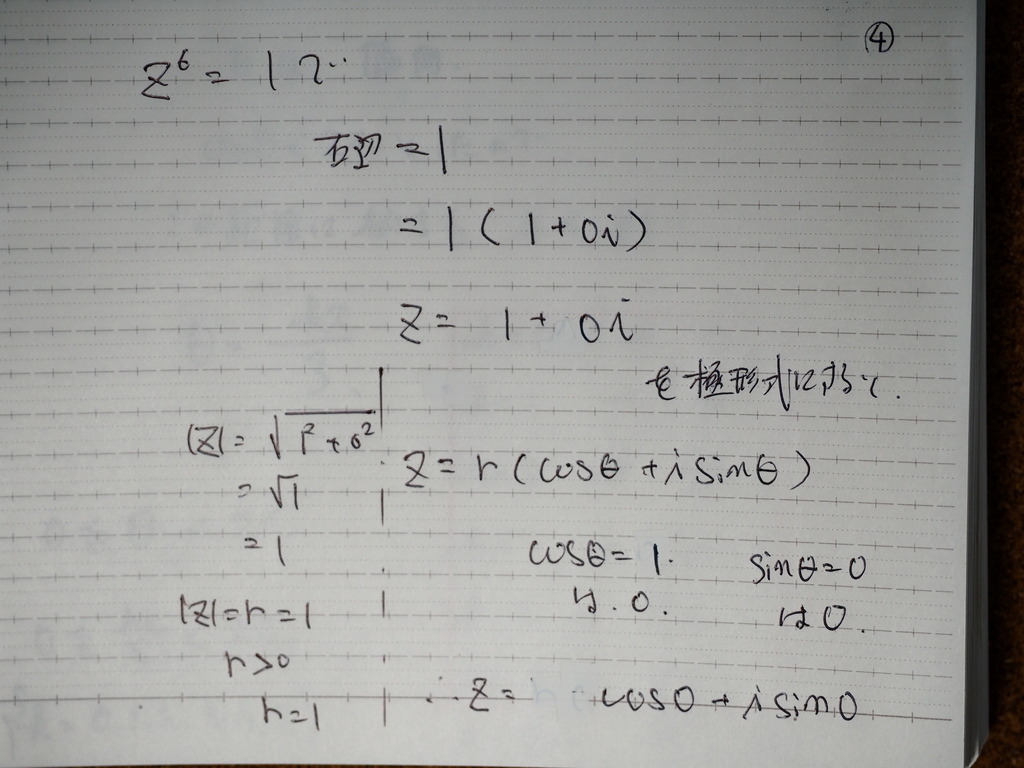 ④
z⁶ = 1 で…
右辺 = 1
= 1 ( 1 + 0i )
z = 1 + 0i
を極形式にすると.
|z| = √(1² + 0²)
= √1
= 1
|z| = r = 1
r > 0
r = 1
z = r ( cosθ + i sinθ )
cosθ = 1. sinθ = 0
は. 0. は 0.
∴ z = cos0 + i sin0